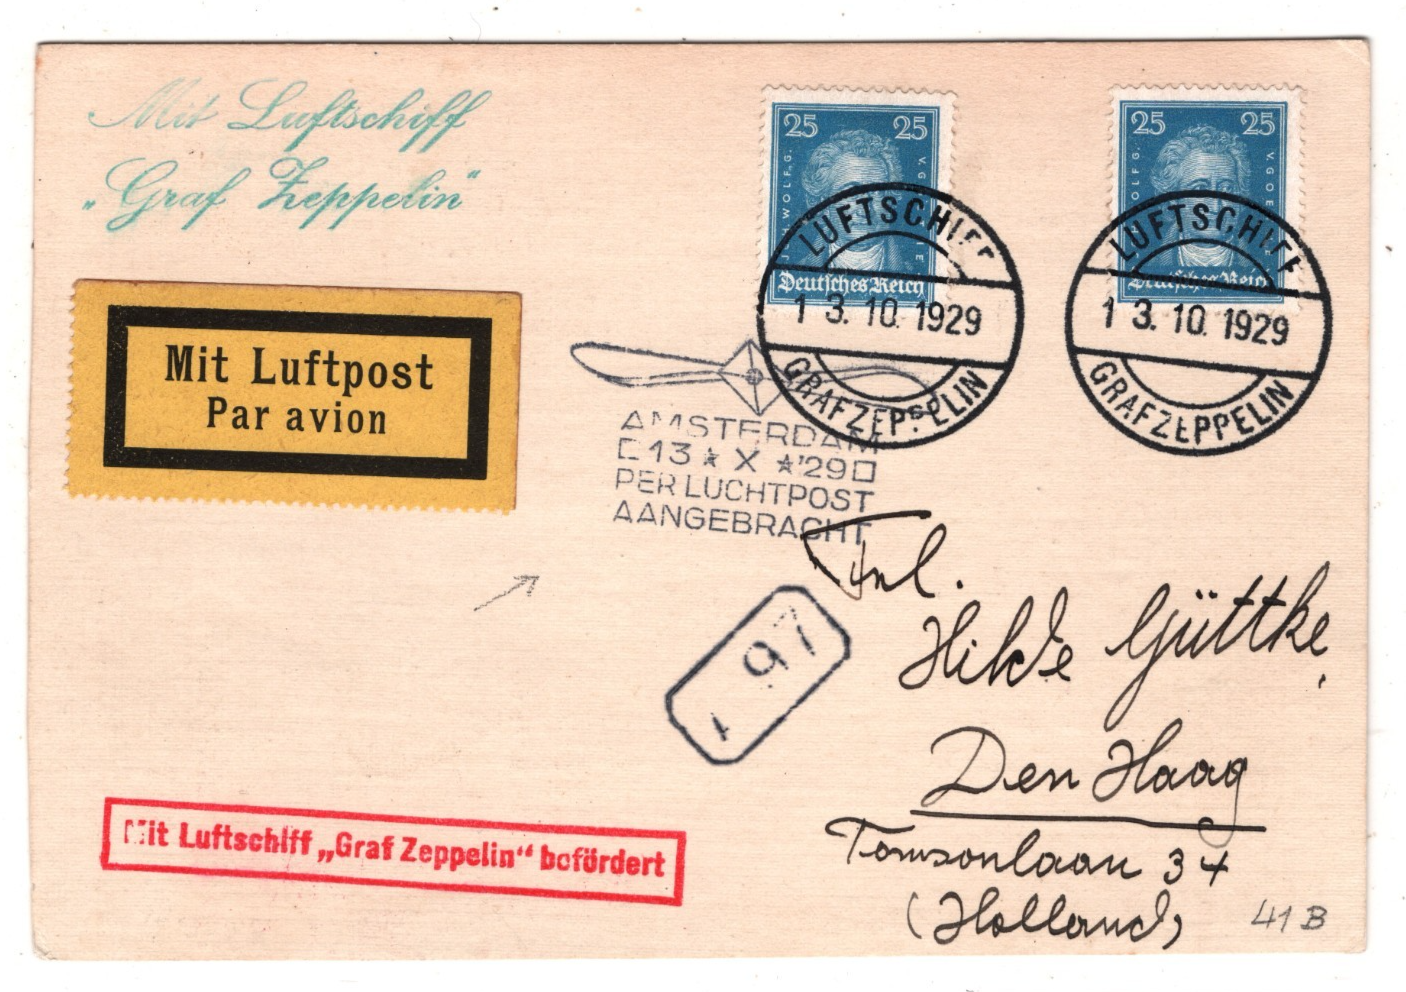 Mit Luftschiff
„Graf Zeppelin"
Mit Luftpost
Par avion
25 25
WOLFG. V. GOE
Deutsches Reich
25 25
WOLFG. V. GOE
Deutsches Reich
LUFTSCHIFF
13.10.1929
GRAF ZEPPELIN
LUFTSCHIFF
13.10.1929
GRAF ZEPPELIN
AMSTERDAM
13 ★ X ★ '29
PER LUCHTPOST
AANGEBRACHT
197
Frl.
Hilde Güttke,
Den Haag
Tomsonlaan 34
(Holland)
Mit Luftschiff „Graf Zeppelin“ befördert
41 B